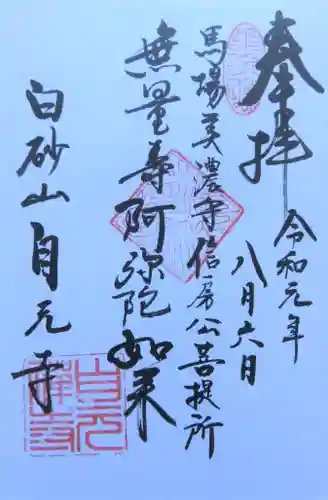 奉拝
令和元年
八月六日
馬場美濃守信房公菩提所
無量寿阿弥陀如来
白砂山自元寺